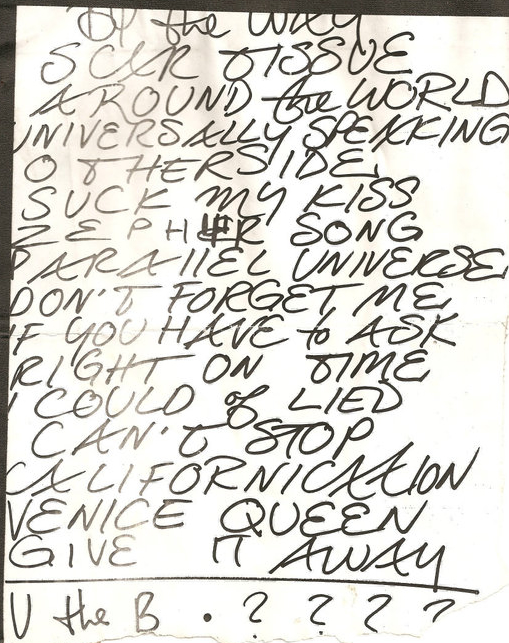 By the WAY
SCAR TISSUE
AROUND the WORLD
UNIVERSALLY SPEAKING
OTHERSIDE
SUCK MY KISS
ZEPHYR SONG
PARALLEL UNIVERSE
DON'T FORGET ME
IF YOU HAVE to ASK
RIGHT ON TIME
I COULD of LIED
CAN'T STOP
CALIFORNICATION
VENICE QUEEN
GIVE IT AWAY
U the B . ? ? ? ?